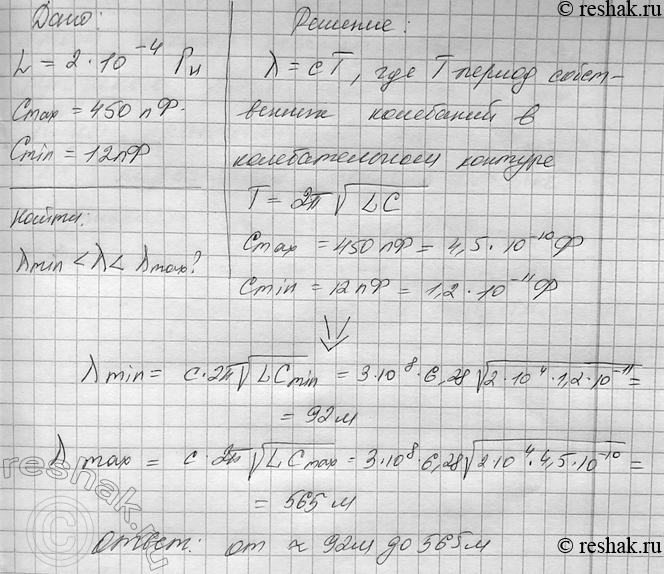 © reshak.ru
Дано:
L = 2·10⁻⁴ Гн
Cmax = 450 пФ
Cmin = 12 пФ
Найти:
λmin < λ < λmax?
Решение:
λ = cT, где T период собст-
венных колебаний в
колебательном контуре
T = 2π√LC
Cmax = 450 пФ = 4,5·10⁻¹⁰ Ф
Cmin = 12 пФ = 1,2·10⁻¹¹ Ф
λmin = c·2π√LCmin = 3·10⁸·6,28√2·10⁴·1,2·10⁻¹¹ =
= 92 м
λmax = c·2π√LCmax = 3·10⁸·6,28√2·10⁴·4,5·10⁻¹⁰ =
= 565 м
Ответ: от ≈ 92 м до 565 м
reshak.ru
© reshak.ru